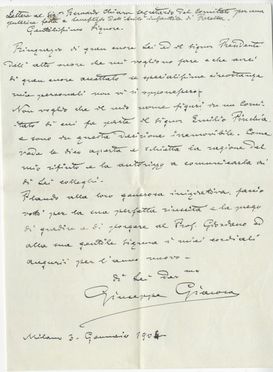 Lettera al Sig. Bernardo Chiara segretario del Comitato per una
pubblica festa a beneficio dell'
Gentilissimo Signore
Ringrazio di gran cuore Lei ed il Signor Presidente
dell'alto onore che mi vogliono fare e che avrei
di gran cuore accettato se specialissime circostanze
mie personali non vi si opponessero.
Non voglio che il mio nome figuri in un Comi-
tato di cui fa parte il Signor Emilio
e sono in questa decisione irremovibile. Come
vede le dico aperta e schietta la ragione del
mio rifiuto e la autorizzo a comunicarla ai
di Lei colleghi.
Plaudo alla loro generosa iniziativa, faccio
voti per la sua perfetta riuscita e la prego
di gradire e di porgere al Prof. Giordano ed
alla sua gentile Signora i miei cordiali
auguri per l'anno nuovo.
di Lei Dev mo
Giuseppe Giacosa
Milano 3. Gennaio 1904